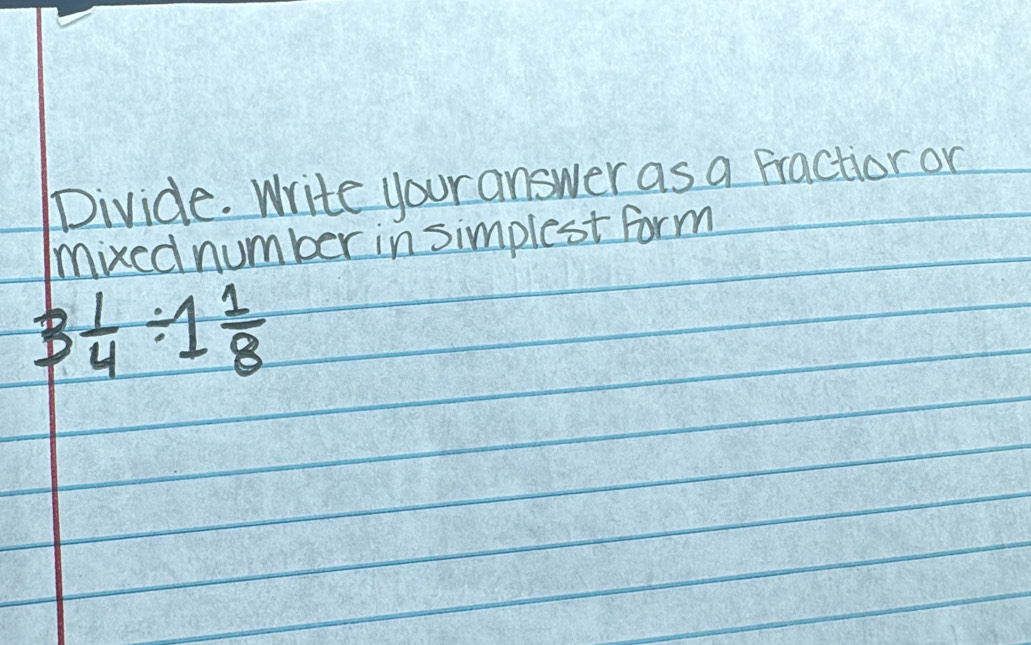 Divide. Write your answer as a Fractior or
mixed number in simplest form
3 1/4 ÷ 1 1/8